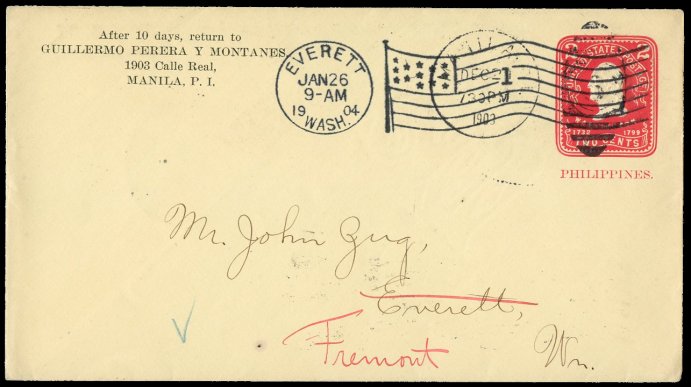 After 10 days, return to
GUILLERMO PERERA Y MONTANES
1903 Calle Real,
MANILA, P. I.
EVERETT
JAN 26
9-AM
1904
WASH.
DEC 21
730PM
1903
UNITED STATES
1732 1799
TWO CENTS
PHILIPPINES.
Mr. John Zug,
Everett,
Fremont Wn.